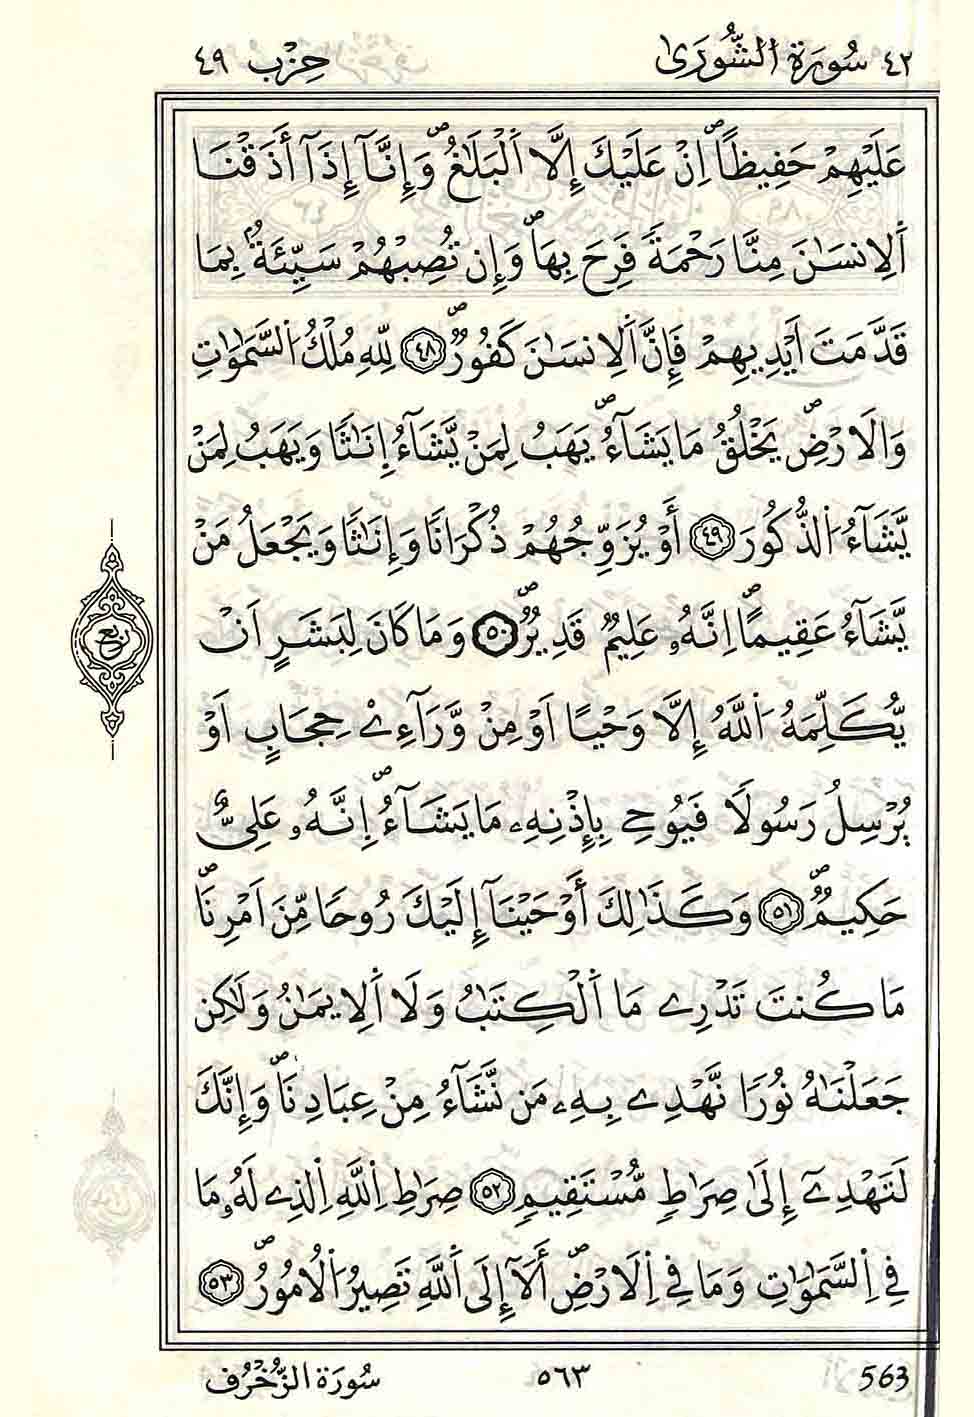 ٤٢ سُورَةُ الشُّورَىٰ حِزْب ٤٩
عَلَيْهِمْ حَفِيظًاۖ اِنْ عَلَيْكَ إِلَّا اَ۬لْبَلَٰغُۖ وَإِنَّآ إِذَآ أَذَقْنَا
اَ۬لِانسَٰنَ مِنَّا رَحْمَةٗ فَرِحَ بِهَاۖ وَإِن تُصِبْهُمْ سَيِّئَةُۢ بِمَا
قَدَّمَتَ اَيْدِيهِمْ فَإِنَّ اَ۬لِانسَٰنَ كَفُورٞۖ ٤٨ لِلهِ مُلْكُ اُ۬لسَّمَٰوَٰتِ
وَالَارْضِۖ يَخْلُقُ مَا يَشَآءُۖ يَهَبُ لِمَنْ يَّشَآءُ اِنَٰثاٗ وَيَهَبُ لِمَنْ
يَّشَآءُ اُ۬لذُّكُورَ ٤٩ أَوْ يُزَوِّجُهُمْ ذُكْرَاناٗ وَإِنَٰثاٗ وَيَجْعَلُ مَنْ
يَّشَآءُ عَقِيماًۖ اِنَّهُۥ عَلِيمٞ قَدِيرٞۖ ٥٠ وَمَا كَانَ لِبَشَرٍ اَنْ
يُّكَلِّمَهُ اُ۬للَّهُ إِلَّا وَحْياً اَوْ مِنْ وَّرَآءِےْ حِجَابٍ اَوْ
يُرْسِلُ رَسُولاٗ فَيُوحِے بِإِذْنِهِۦ مَا يَشَآءُۖ اِنَّهُۥ عَلِيٌّ
حَكِيمٞۖ ٥١ وَكَذَٰلِكَ أَوْحَيْنَآ إِلَيْكَ رُوحاٗ مِّنَ اَمْرِنَاۖ
مَا كُنتَ تَدْرِے مَا اَ۬لْكِتَٰبُ وَلَا اَ۬لِايمَٰنُ وَلَٰكِن
جَعَلْنَٰهُ نُوراٗ نَّهْدِے بِهِۦ مَن نَّشَآءُ مِنْ عِبَادِنَاۖ وَإِنَّكَ
لَتَهْدِےٓ إِلَىٰ صِرَٰطٖ مُّسْتَقِيمٖ ٥٢ صِرَٰطِ اِ۬للَّهِ اِ۬لذِے لَهُۥ مَا
فِے اِ۬لسَّمَٰوَٰتِ وَمَا فِے اِ۬لَارْضِۖ أَلَآ إِلَى اَ۬للَّهِ تَصِيرُ اُ۬لُامُورُۖ ٥٣
ربع
563 ٥٦٣ سُورَةُ الزُّخْرُف